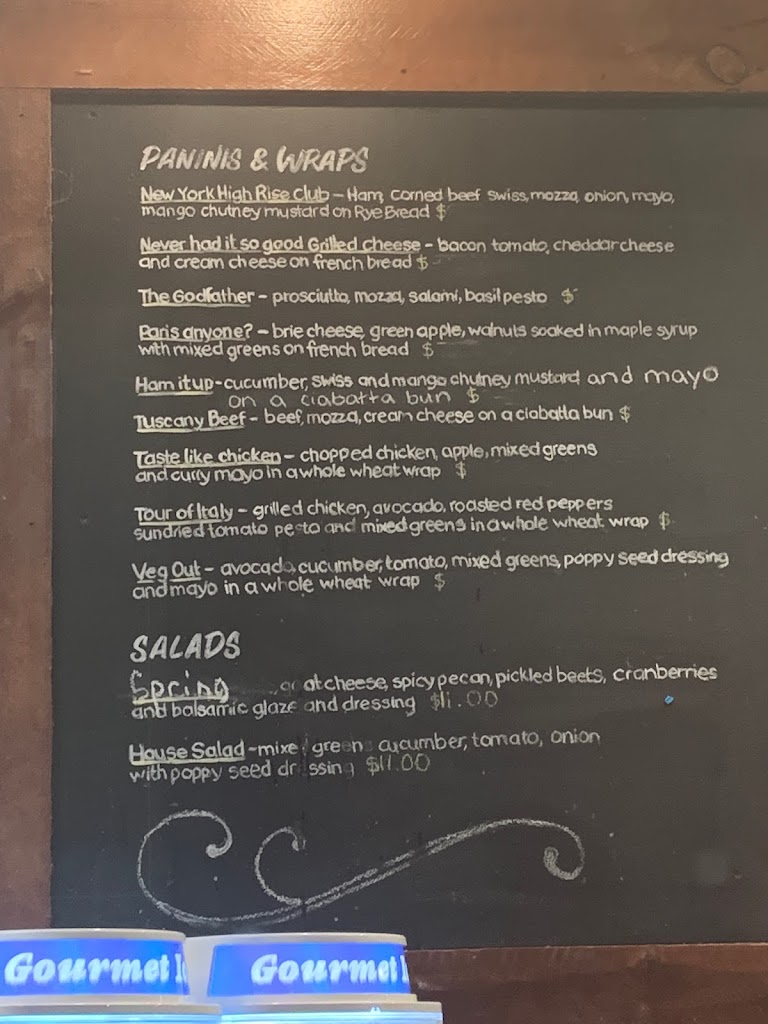 PANINIS & WRAPS
New York High Rise Club - Ham, corned beef swiss, mozza, onion, mayo,
mango chutney mustard on Rye Bread $
Never had it so good Grilled cheese - bacon tomato, cheddar cheese
and cream cheese on french bread $
The Godfather - prosciutto, mozza, salami, basil pesto $
Paris anyone? - brie cheese, green apple, walnuts soaked in maple syrup
with mixed greens on french bread $
Ham it up - cucumber, swiss and mango chutney mustard and mayo
on a ciabatta bun $
Tuscany Beef - beef, mozza, cream cheese on a ciabatta bun $
Taste like chicken - chopped chicken, apple, mixed greens
and curry mayo in a whole wheat wrap $
Tour of Italy - grilled chicken, avocado, roasted red peppers
sundried tomato pesto and mixed greens in a whole wheat wrap $
Veg Out - avocado, cucumber, tomato, mixed greens, poppy seed dressing
and mayo in a whole wheat wrap $
SALADS
Spring goat cheese, spicy pecan, pickled beets, cranberries
and balsamic glaze and dressing $11.00
House Salad - mixe green cucumber, tomato, onion
with poppy seed dr ssing $11.00
Gourmet Gourmet